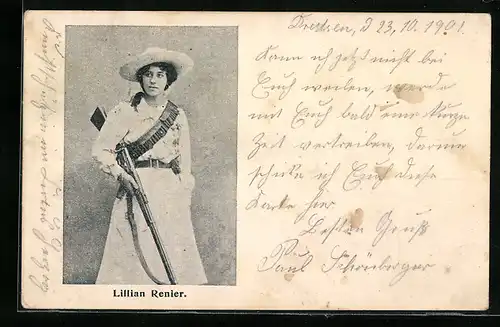 Dresden, d 23. 10. 1901.
Kann ich jetzt nicht bei
Euch weilen, werde
mit Euch bald eine kurze
Zeit vertreiben, darum
schicke ich Euch diese
Karte hier.
Besten Gruß
Paul Schönberger
Lillian Renier.